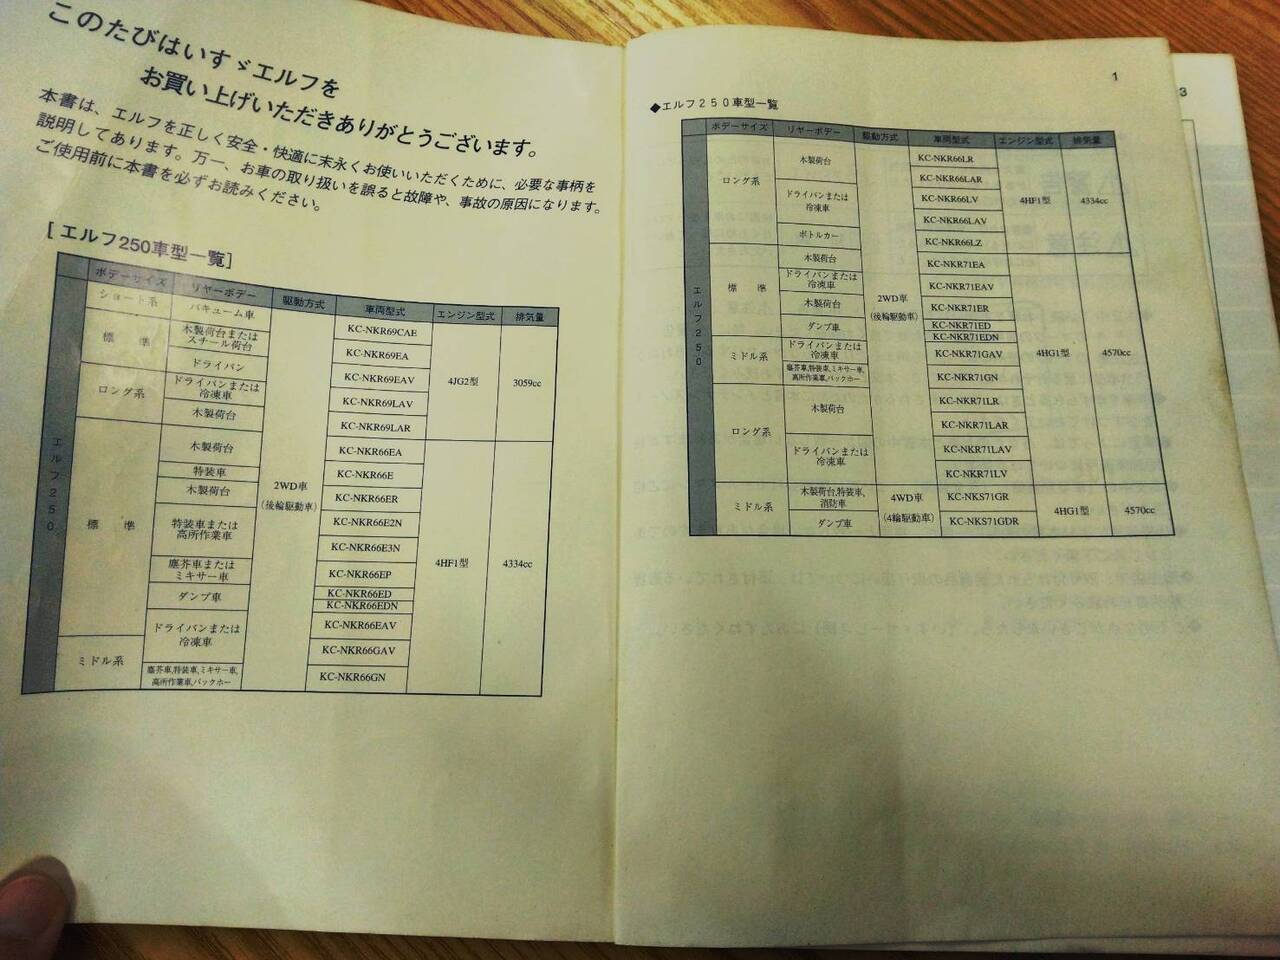 このたびはいすゞエルフを
お買い上げいただきありがとうございます。
本書は、エルフを正しく安全・快適に末永くお使いいただくために、必要な事柄を
説明してあります。万一、お車の取り扱いを誤ると故障や、事故の原因になります。
ご使用前に本書を必ずお読みください。
[エルフ250車型一覧]
ボデーサイズ リヤーボデー 駆動方式 車両型式 エンジン型式 排気量
エルフ250
ショート系 バキューム車 KC-NKR69CAE
標 準 木製荷台または
スチール荷台 KC-NKR69EA
ドライバン KC-NKR69EAV 4JG2型 3059cc
ロング系 ドライバンまたは
冷凍車 KC-NKR69LAV
木製荷台 KC-NKR69LAR
標 準 木製荷台 KC-NKR66EA
特装車 KC-NKR66E
木製荷台 2WD車
(後輪駆動車) KC-NKR66ER
特装車または
高所作業車 KC-NKR66E2N
KC-NKR66E3N
塵芥車または
ミキサー車 KC-NKR66EP 4HF1型 4334cc
ダンプ車 KC-NKR66ED
KC-NKR66EDN
ドライバンまたは
冷凍車 KC-NKR66EAV
ミドル系 KC-NKR66GAV
塵芥車,特装車,ミキサー車,
高所作業車,バックホー KC-NKR66GN
1
◆エルフ250車型一覧
ボデーサイズ リヤーボデー 駆動方式 車両型式 エンジン型式 排気量
エルフ250
ロング系 木製荷台 KC-NKR66LR
KC-NKR66LAR
ドライバンまたは
冷凍車 KC-NKR66LV 4HF1型 4334cc
KC-NKR66LAV
ボトルカー KC-NKR66LZ
標 準 木製荷台 KC-NKR71EA
ドライバンまたは
冷凍車 KC-NKR71EAV
木製荷台 2WD車
(後輪駆動車) KC-NKR71ER
ダンプ車 KC-NKR71ED
KC-NKR71EDN
ミドル系 ドライバンまたは
冷凍車 KC-NKR71GAV 4HG1型 4570cc
塵芥車,特装車,ミキサー車,
高所作業車,バックホー KC-NKR71GN
ロング系 木製荷台 KC-NKR71LR
KC-NKR71LAR
ドライバンまたは
冷凍車 KC-NKR71LAV
KC-NKR71LV
ミドル系 木製荷台,特装車,
消防車 4WD車
(4輪駆動車) KC-NKS71GR 4HG1型 4570cc
ダンプ車 KC-NKS71GDR
3